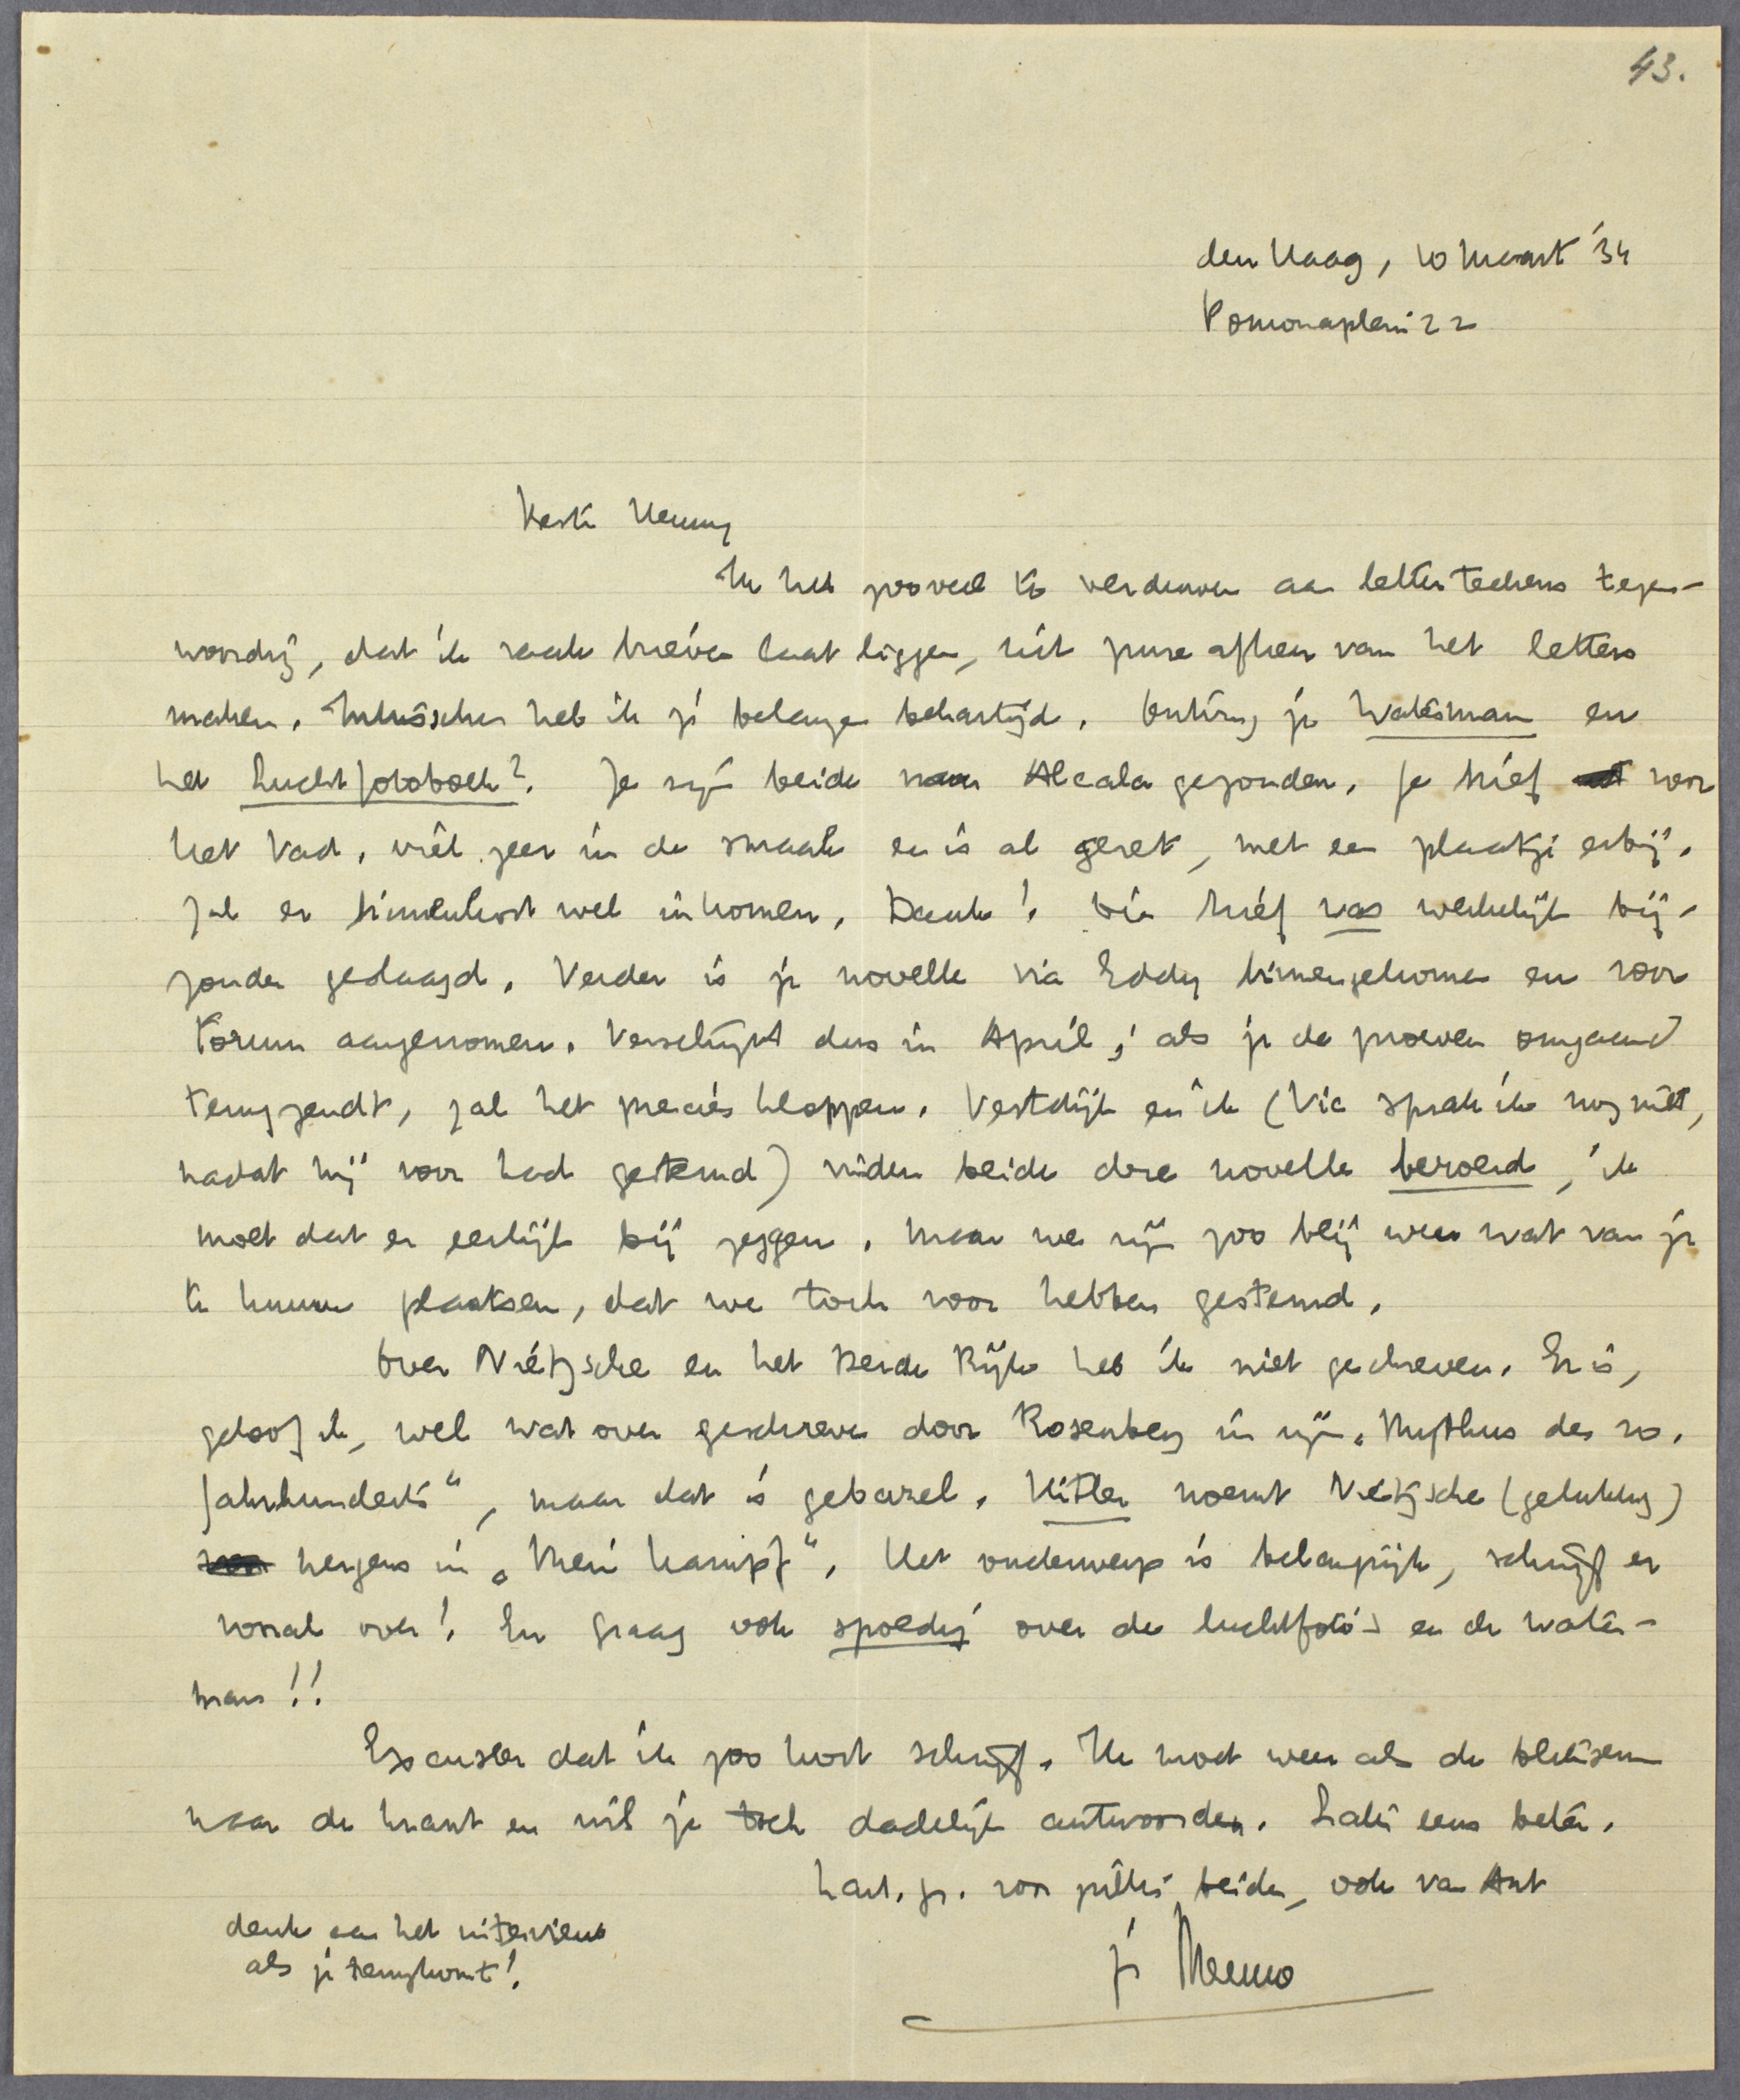 43.
den Haag, 10 Maart '34
Pomonaplein 22
Beste Henny
Ik heb zooveel te verduwen aan letterteekens tegen-
woordig, dat ik vaak brieven laat liggen, uit pure afkeer van het letters
maken. Intusschen heb ik je belangen behartigd. Ontving je Waterman en
het Luchtfotoboek? Ze zijn beide naar Alcala gezonden. Je brief voor
het Vad. viel zeer in de smaak en is al gezet, met een plaatje erbij.
Zal er binnenkort wel inkomen. Dank! Die brief was werkelijk bij-
zonder geslaagd. Verder is je novelle via Eddy binnengekomen en voor
Forum aangenomen. Verschijnt dus in April; als je de proeven omgaand
terugzendt, zal het precies kloppen. Vestdijk en ik (Vic sprak ik nog niet,
nadat hij voor had gestemd) vinden beide deze novelle beroerd, ik
moet dat er eerlijk bij zeggen. Maar we zijn zoo blij weer wat van je
te kunnen plaatsen, dat we toch voor hebben gestemd.
Over Nietzsche en het Derde Rijk heb ik niet geschreven. Er is,
geloof ik, wel wat over geschreven door Rosenberg in zijn „Mythus des 20.
Jahrhunderts", maar dat is gebazel. Hitler noemt Nietzsche (gelukkig)
nergens in „Mein Kampf". Het onderwerp is belangrijk, schrijf er
vooral over! En graag ook spoedig over de luchtfoto's en de Water-
man!!
Excuseer dat ik zoo kort schrijf. Ik moet weer als de bliksem
naar de krant en wil je toch dadelijk antwoorden. Later eens beter.
hart. gr. voor jullie beiden, ook van Ant
je Menno
denk aan het interview
als je terugkomt!